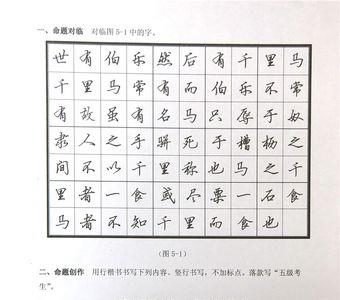 一、命题对临 对临图5-1中的字。
世有伯乐然后有千里马
千里马常有而伯乐不常
有故虽有名马只辱于奴
隶人之手骈死于槽枥之
间不以千里称也马之千
里者一食或尽粟一石食
马者不知千里而食也
(图5-1)
二、命题创作 用行楷书书写下列内容。竖行书写，不加标点。落款写“五级考
生”。